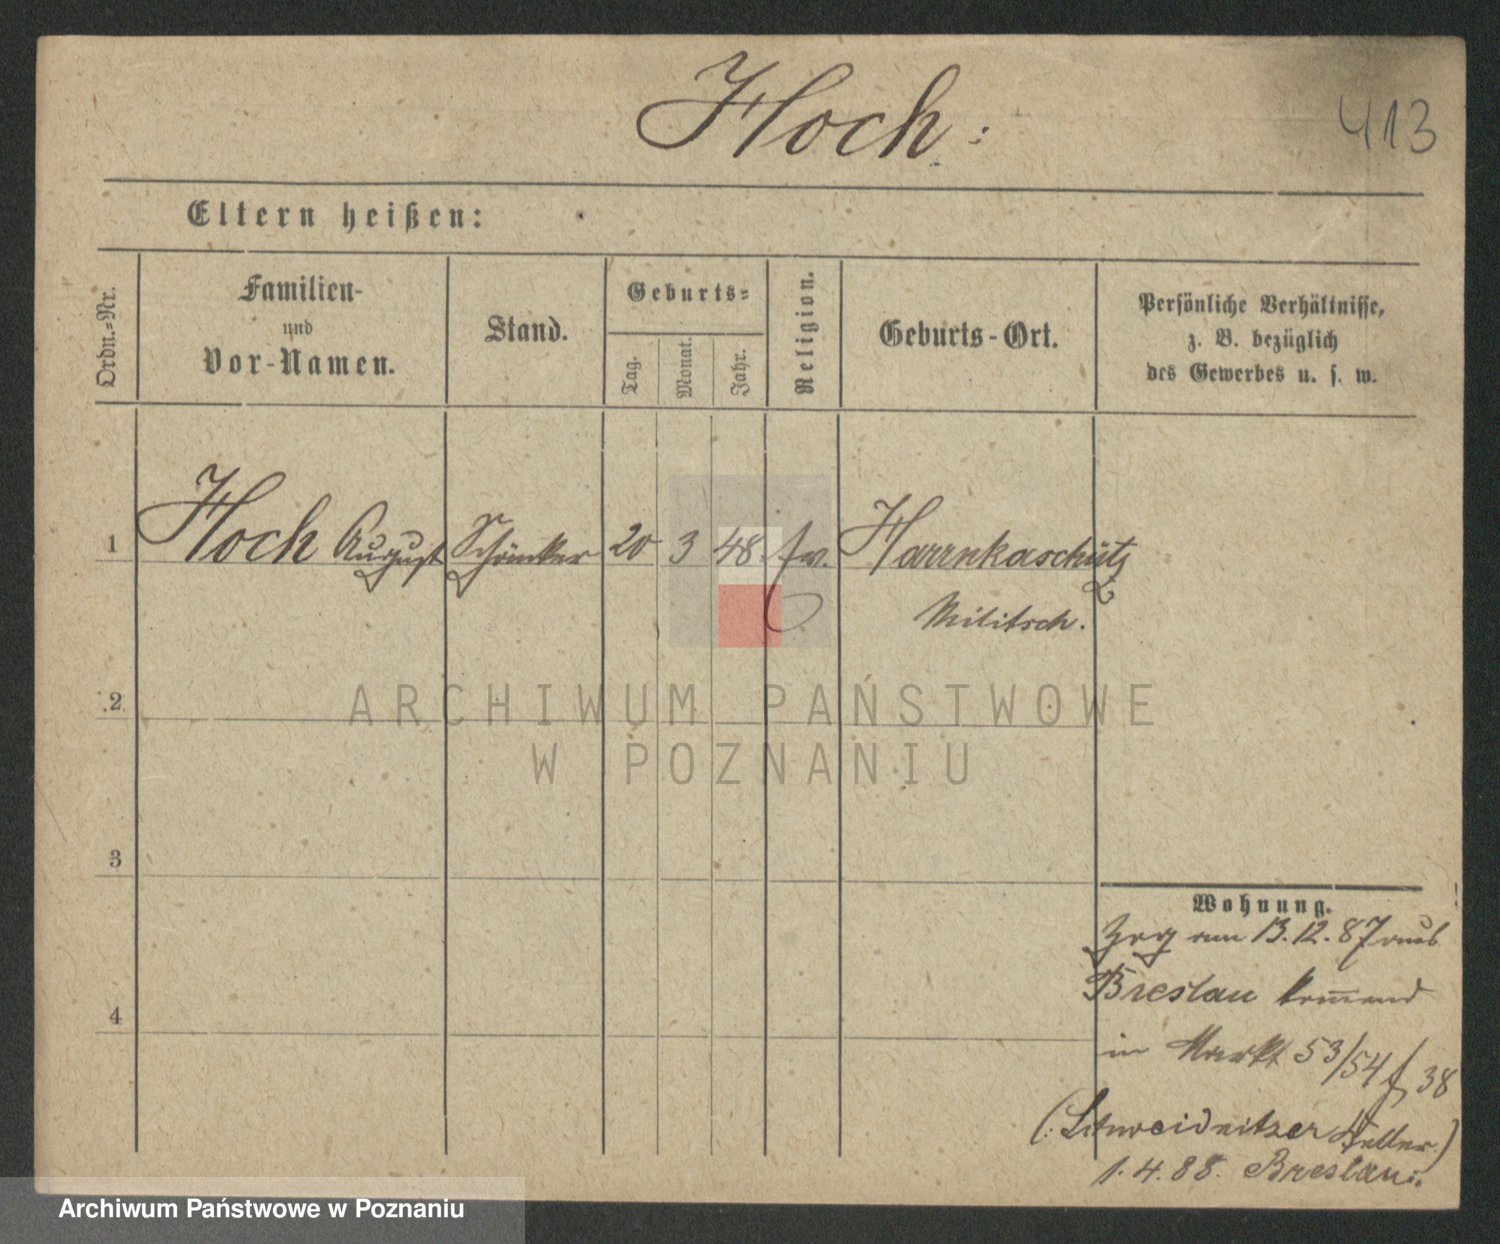 Hoch:
413
Eltern heißen:
Ordn.-Nr.
Familien-
und
Vor-Namen.
Stand.
Geburts-
Tag.
Monat.
Jahr.
Religion.
Geburts-Ort.
Persönliche Verhältnisse,
z. B. bezüglich
des Gewerbes u. s. w.
1 Hoch August Schänker 20 3 48. ev. Harrnkaschütz
Militsch.
2
ARCHIWUM PAŃSTWOWE
W POZNANIU
3
Wohnung.
Zog am 13.12.87 aus
Breslau kommend
4
in Markt 53/54 f 38
(: Schweidnitzer Keller.)
1.4.88. Breslau.
Archiwum Państwowe w Poznaniu